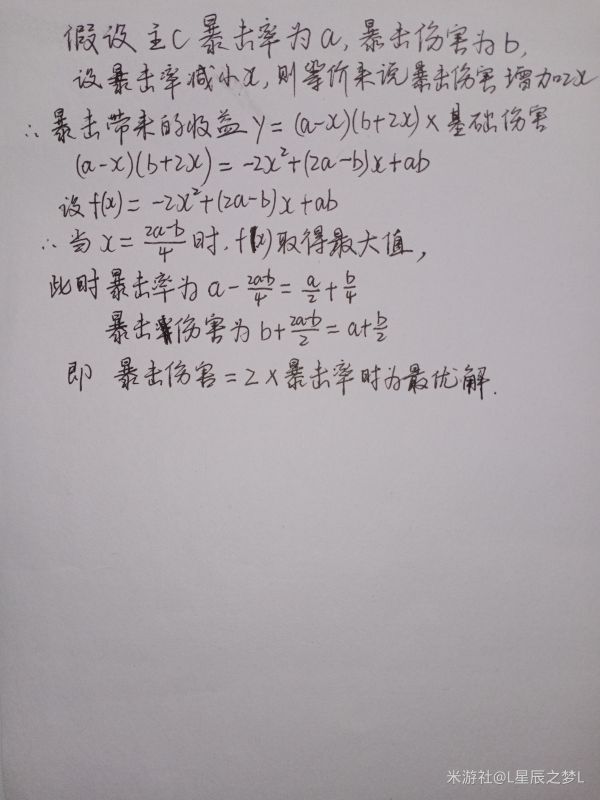 假设主C暴击率为a,暴击伤害为b,
设暴击率减小x,则等价来说暴击伤害增加2x
∴暴击带来的收益y=(a-x)(b+2x)×基础伤害
(a-x)(b+2x)=-2x²+(2a-b)x+ab
设f(x)=-2x²+(2a-b)x+ab
∴当x=\frac{2a-b}{4}时,f(x)取得最大值,
此时暴击率为a-\frac{2a-b}{4}=\frac{a}{2}+\frac{b}{4}
暴击伤害为b+\frac{2a-b}{2}=a+\frac{b}{2}
即 暴击伤害=2×暴击率时为最优解.
米游社@L星辰之梦L